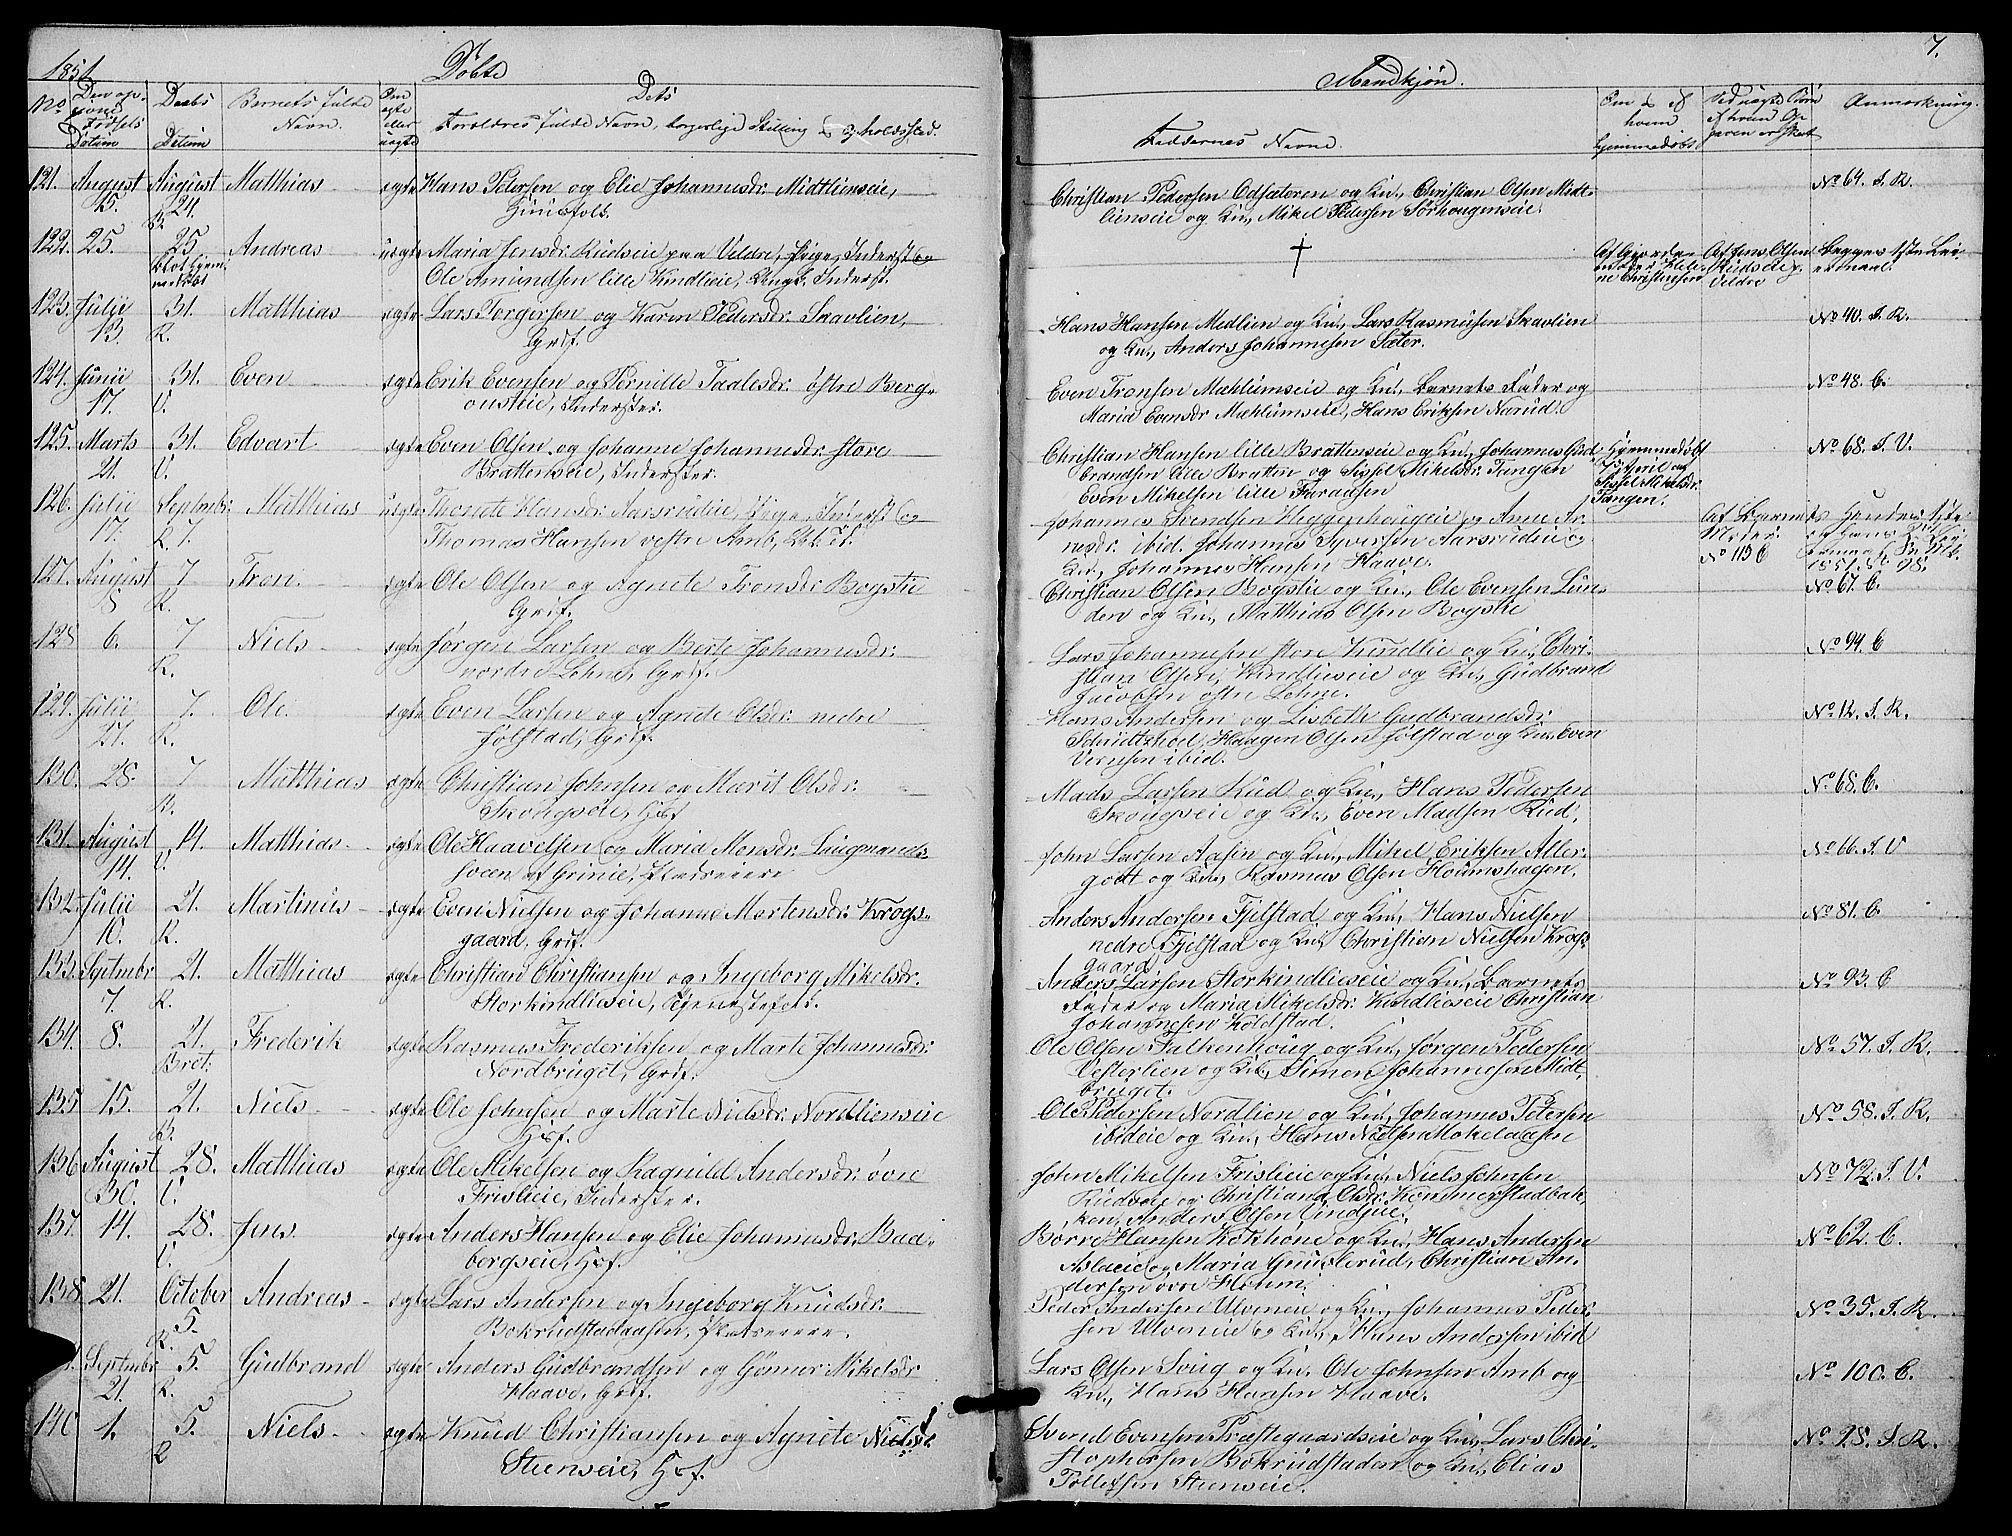 1851
Døbte
Mandkjøn.
7.
No
Den op-
givne
Fødsels
Datum
Daabs
Datum
Barnets fulde
Navn.
Om
ægte
eller
uægte
Dets
Forældres fulde Navn, borgerlige Stilling & Opholdssted.
Faddernes Navne.
Om & af
hvem
hjemmedøbt
Ved uægte Børn
af hvem Op-
gaven er skeet
Anmærkning.
121. August August Matthias ægte Hans Petersen og Elie Johannesdr. Midtlienseie,
15. 24. Huusfolk.
Christian Pedersen Odsæteren og Ku., Christian Olsen Midt-
lienseie og Ku., Mikel Pedersen Sørhougenseie.
No 64. I. R.
122. 25. 25 Andreas uægte Maria Jensdr. Rudseie paa Vildre, Pige, Inderst og
Ole Amundsen lille Kindlieie, Ungk. Inderst.
†
Ole Olsen
Af Jens Olsen
Rudseie p.
Vildre
Begges 1ste Lei-
ermaal.
123. Julii 31. Matthias ægte Lars Torgersen og Karen Pedersdr. Skavlien,
13. R. Grif.
Hans Hansen Medlien og Ku., Lars Rasmusen Skavlien
og Ku., Anders Johannesen Sæter.
No 40. I. R.
124. Junii 31. Even ægte Erik Evensen og Pernille Taalesdr. østre Berg-
17. V. ousteie, Inderster.
Even Tronsen Mæhlumseie og Ku., Barnets Fader og
Maria Evensdr Mæhlumseie, Hans Eriksen Narud.
No 48. C.
125. Marts 31. Edvart ægte Even Olsen og Johanne Johannesdr. store
21. V. Brattenseie, Inderster.
Christian Hansen lille Brattenseie og Ku., Johannes Gud-
brandsen lille Bratten og Sissel Mikelsdr. Tangen
Even Mikelsen lille Faraasen
Hjemmedøbt
7 April af
Sissel Mikelsdr.
Tangen.
No 68. I. V.
126. Julii Septembr. Matthias uægte Thonte Hansdr. Aarsrudeie, Pige, Inderst og
17. R. 7. Thomas Hansen vestre Amb, Uk. Id.
Johannes Svendsen Heggenhougeie og Anne Ar-
nesdr. ibid. Johannes Syversen Aarsrudeie og
Ku., Johannes Hansen Haave.
Af Barnets
Moder.
No 113 C
127. August 7 Tron. ægte Ole Olsen og Agnete Tronsdr. Bogstie
8 R. Grif.
Christian Olsen Bogstie og Ku., Ole Evensen Lun-
den og Ku., Matthias Olsen Bogstie
No 67. C.
128 6. 7 Niels ægte Jørgen Larsen og Berte Johannesdr.
R. nordre Lohne, Grif.
Lars Johannesen store Kindlie og Ku., Chri-
stian Olsen, Kindlieseie og Ku., Gudbrand
Jacobsen østre Lohne.
No 94. C
129. Julii 7. Ole. ægte Even Larsen og Agnete Olsdr. nedre
27. R. Jølstad, Grif.
Hans Andersen og Lisbeth Gudbrandsdr.
Schridtshoel, Haagen Olsen Jølstad og Ku., Even
Iversen ibid.
No 12. I. R.
130. 28. 7 Matthias ægte Christian Johnsen og Marit Olsdr.
R. Skougseie, Hsf.
Mads Larsen Rud og Ku., Hans Pedersen
Skougseie og Ku., Even Madsen Rud.
No 68. C.
131. August 14. Matthias ægte Ole Haavelsen og Maria Monsdr. Laugmands-
14. V. sveen af Grinie, Pladseiere
John Larsen Aasen og Ku., Mikel Eriksen Aller-
godt og Ku., Rasmus Olsen Houmshagen.
No 66. I. V
132. Julii 21. Martinus ægte Even Nielsen og Johanne Mortensdr. Krogs-
10. R. gaard, Grif.
Anders Andersen Fjelstad og Ku., Hans Nielsen
nedre Fjelstad og Ku., Christian Nielsen Krogs-
gaard
No 81. C.
133. Septembr 21. Matthias ægte Christian Christiansen og Ingeborg Mikelsdr.
7. R. Storkindlieseie, Tjenestefolk.
Anders Larsen Storkindlieseie og Ku., Barnets
Fader og Maria Mikelsdr. Kindlieseie Christian
Johannesen Koldstad.
No 93. C
134. 8. 21. Frederik ægte Rasmus Frederiksen og Marte Johannesdr.
Brøt. Nordbruget, Grif.
Ole Olsen Falkenhoug og Ku., Jørgen Pedersen
Vesterlien og Ku., Simen Johannesen Midt-
bruget.
No 57. I. R.
135 15. 21. Niels ægte Ole Johnsen og Marte Nielsdr. Nordlienseie
B. Hsf.
Ole Pedersen Nordlien og Ku., Johannes Petersen
ibideie og Ku., Hans Nielsen Mokelaasen
No 58. I. R.
136 August 28. Matthias ægte Ole Mikelsen og Ragnild Andersdr. øvre
30. V. Frislieie, Inderster.
John Mikelsen Frislieie og Ku., Niels Johnsen
Rudseie og Christiane Olsdr. Kommerstadbak-
ken, Anders Olsen Vindjue.
No 72. I. V.
137. 14. 28. Jens ægte Anders Hansen og Elie Johannesdr. Bad-
V. bergseie, Hsf.
Børre Hansen Kokhone og Ku., Hans Andersen
Aslaeie og Maria Guuslerud, Christian An-
dersen øvre Houm.
No 62. C.
138. 21. October Andreas ægte Lars Andersen og Ingeborg Knudsdr.
5. R. Bokrudstadaasen, Pladseiere.
Peder Andersen Ulveneie og Ku., Johannes Peder-
sen Ulveneie og Ku., Hans Andersen ibid
No 35. I. R.
Septembr 5. Gudbrand ægte Anders Gudbrandsen og Gønnor Mikelsdr
21. R. Haave, Grif.
Lars Olsen Svug og Ku., Ole Johnsen Amb og
Ku., Hans Hansen Haave.
No 100. C.
140 1. 5. Niels ægte Knud Christiansen og Agnete Nielsdr.
R Steenseie, Hsf.
Svend Evensen Præstegaardseie og Ku., Lars Chri-
stophersen Bokrudstaden og Ku., Elias
Pollessen Steenseie.
No 28. I. R.